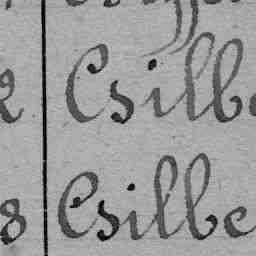 2 Csilbe
8 Csilbe